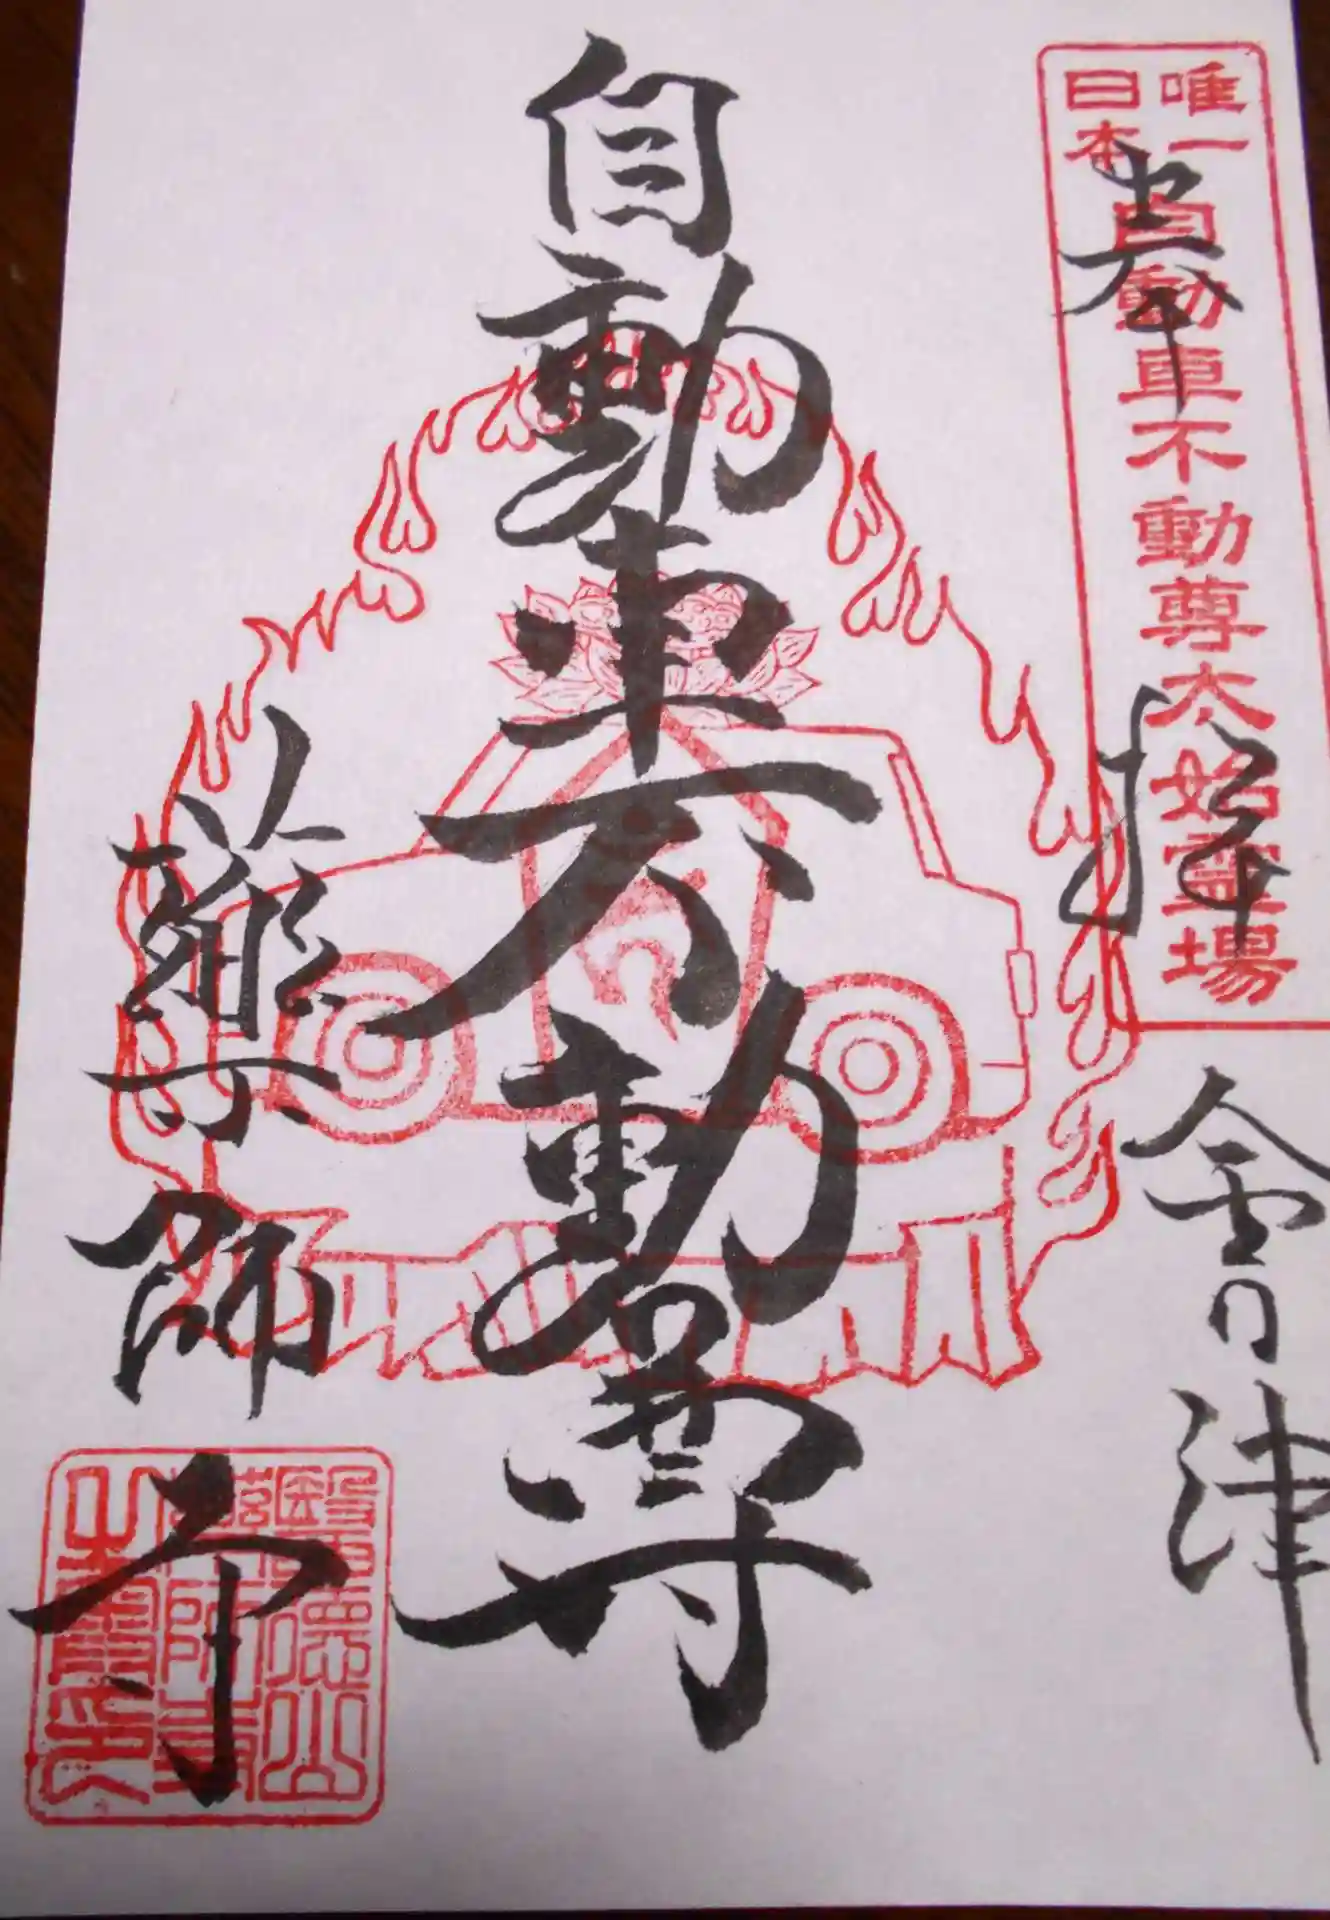 唯一
日本
自動車不動尊太始霊場
奉拝
会津
自動車不動尊
薬師寺